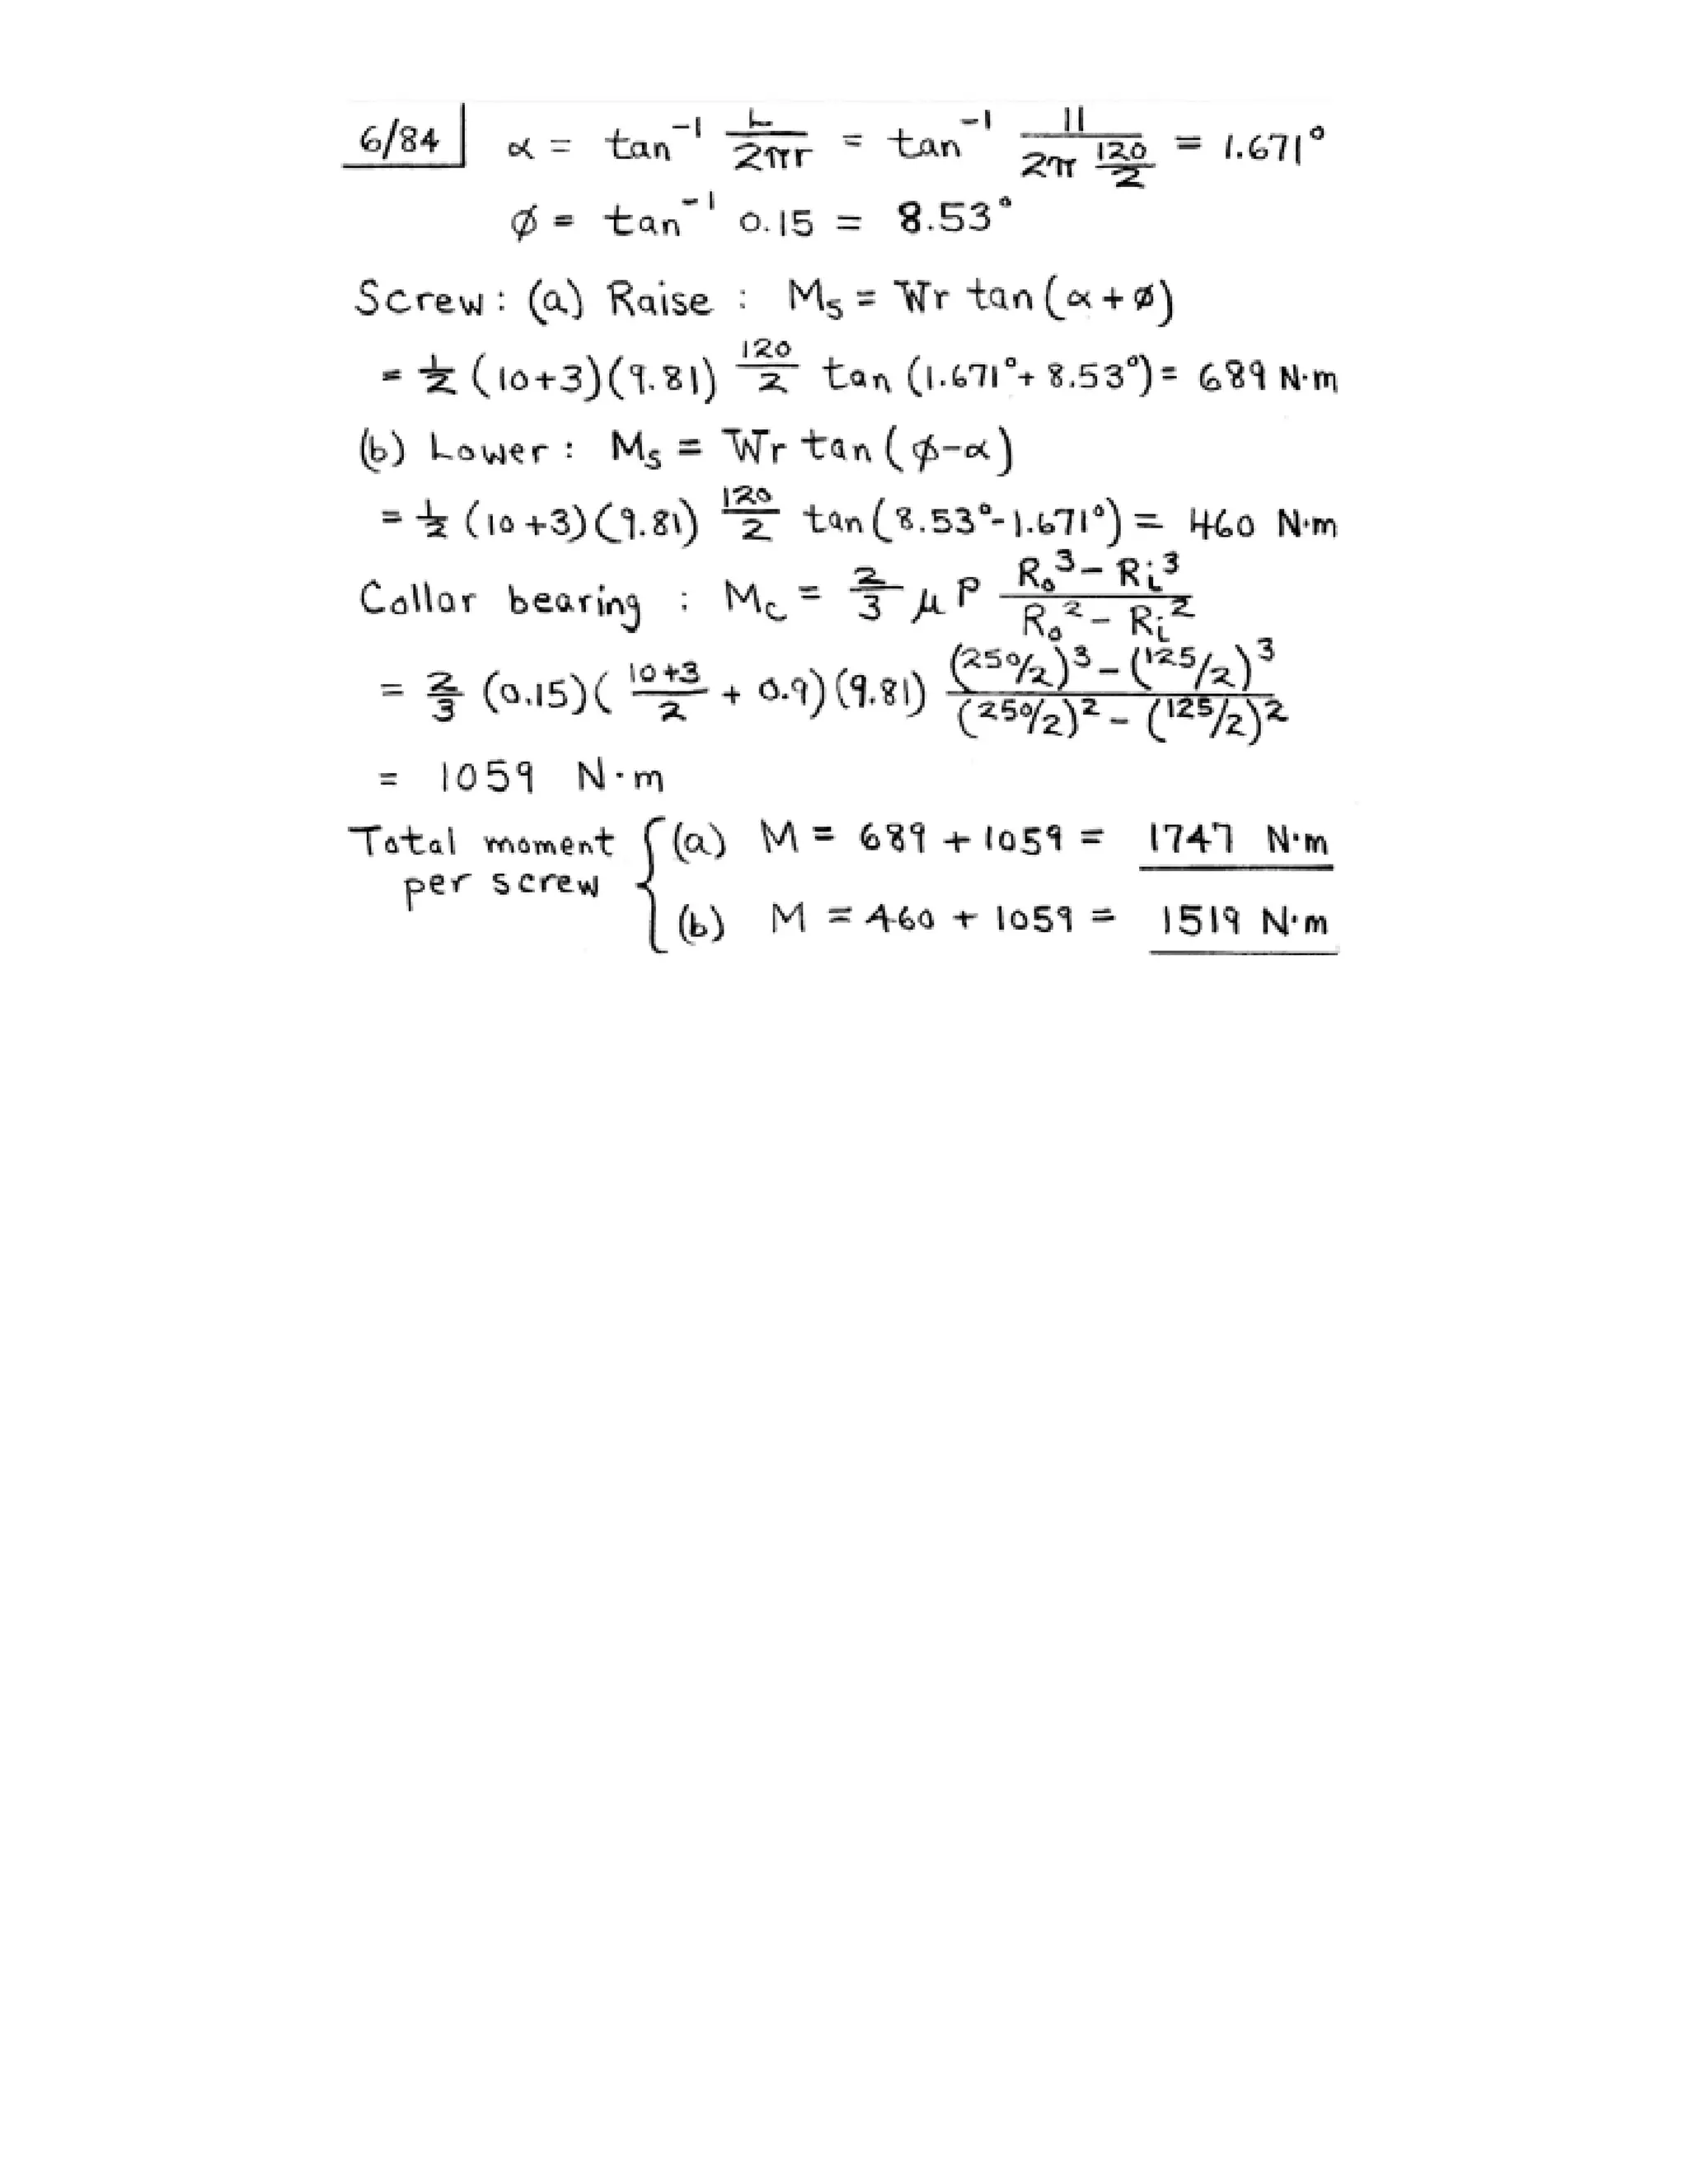 6/84 α = tan⁻¹ L/2πr = tan⁻¹ 11/(2π 120/2) = 1.671°
ø = tan⁻¹ 0.15 = 8.53°
Screw : (a) Raise : Ms = Wr tan (α + ø)
= ½ (10+3)(9.81) 120/2 tan (1.671°+ 8.53°) = 689 N·m
(b) Lower : Ms = Wr tan (ø-α)
= ½ (10+3)(9.81) 120/2 tan (8.53°-1.671°) = 460 N·m
Collar bearing : Mc = 2/3 μP (Ro³ - Ri³)/(Ro² - Ri²)
= 2/3 (0.15)( (10+3)/2 + 0.9)(9.81) ((250/2)³ - (125/2)³)/((250/2)² - (125/2)²)
= 1059 N·m
Total moment per screw { (a) M = 689 + 1059 = 1747 N·m
(b) M = 460 + 1059 = 1519 N·m